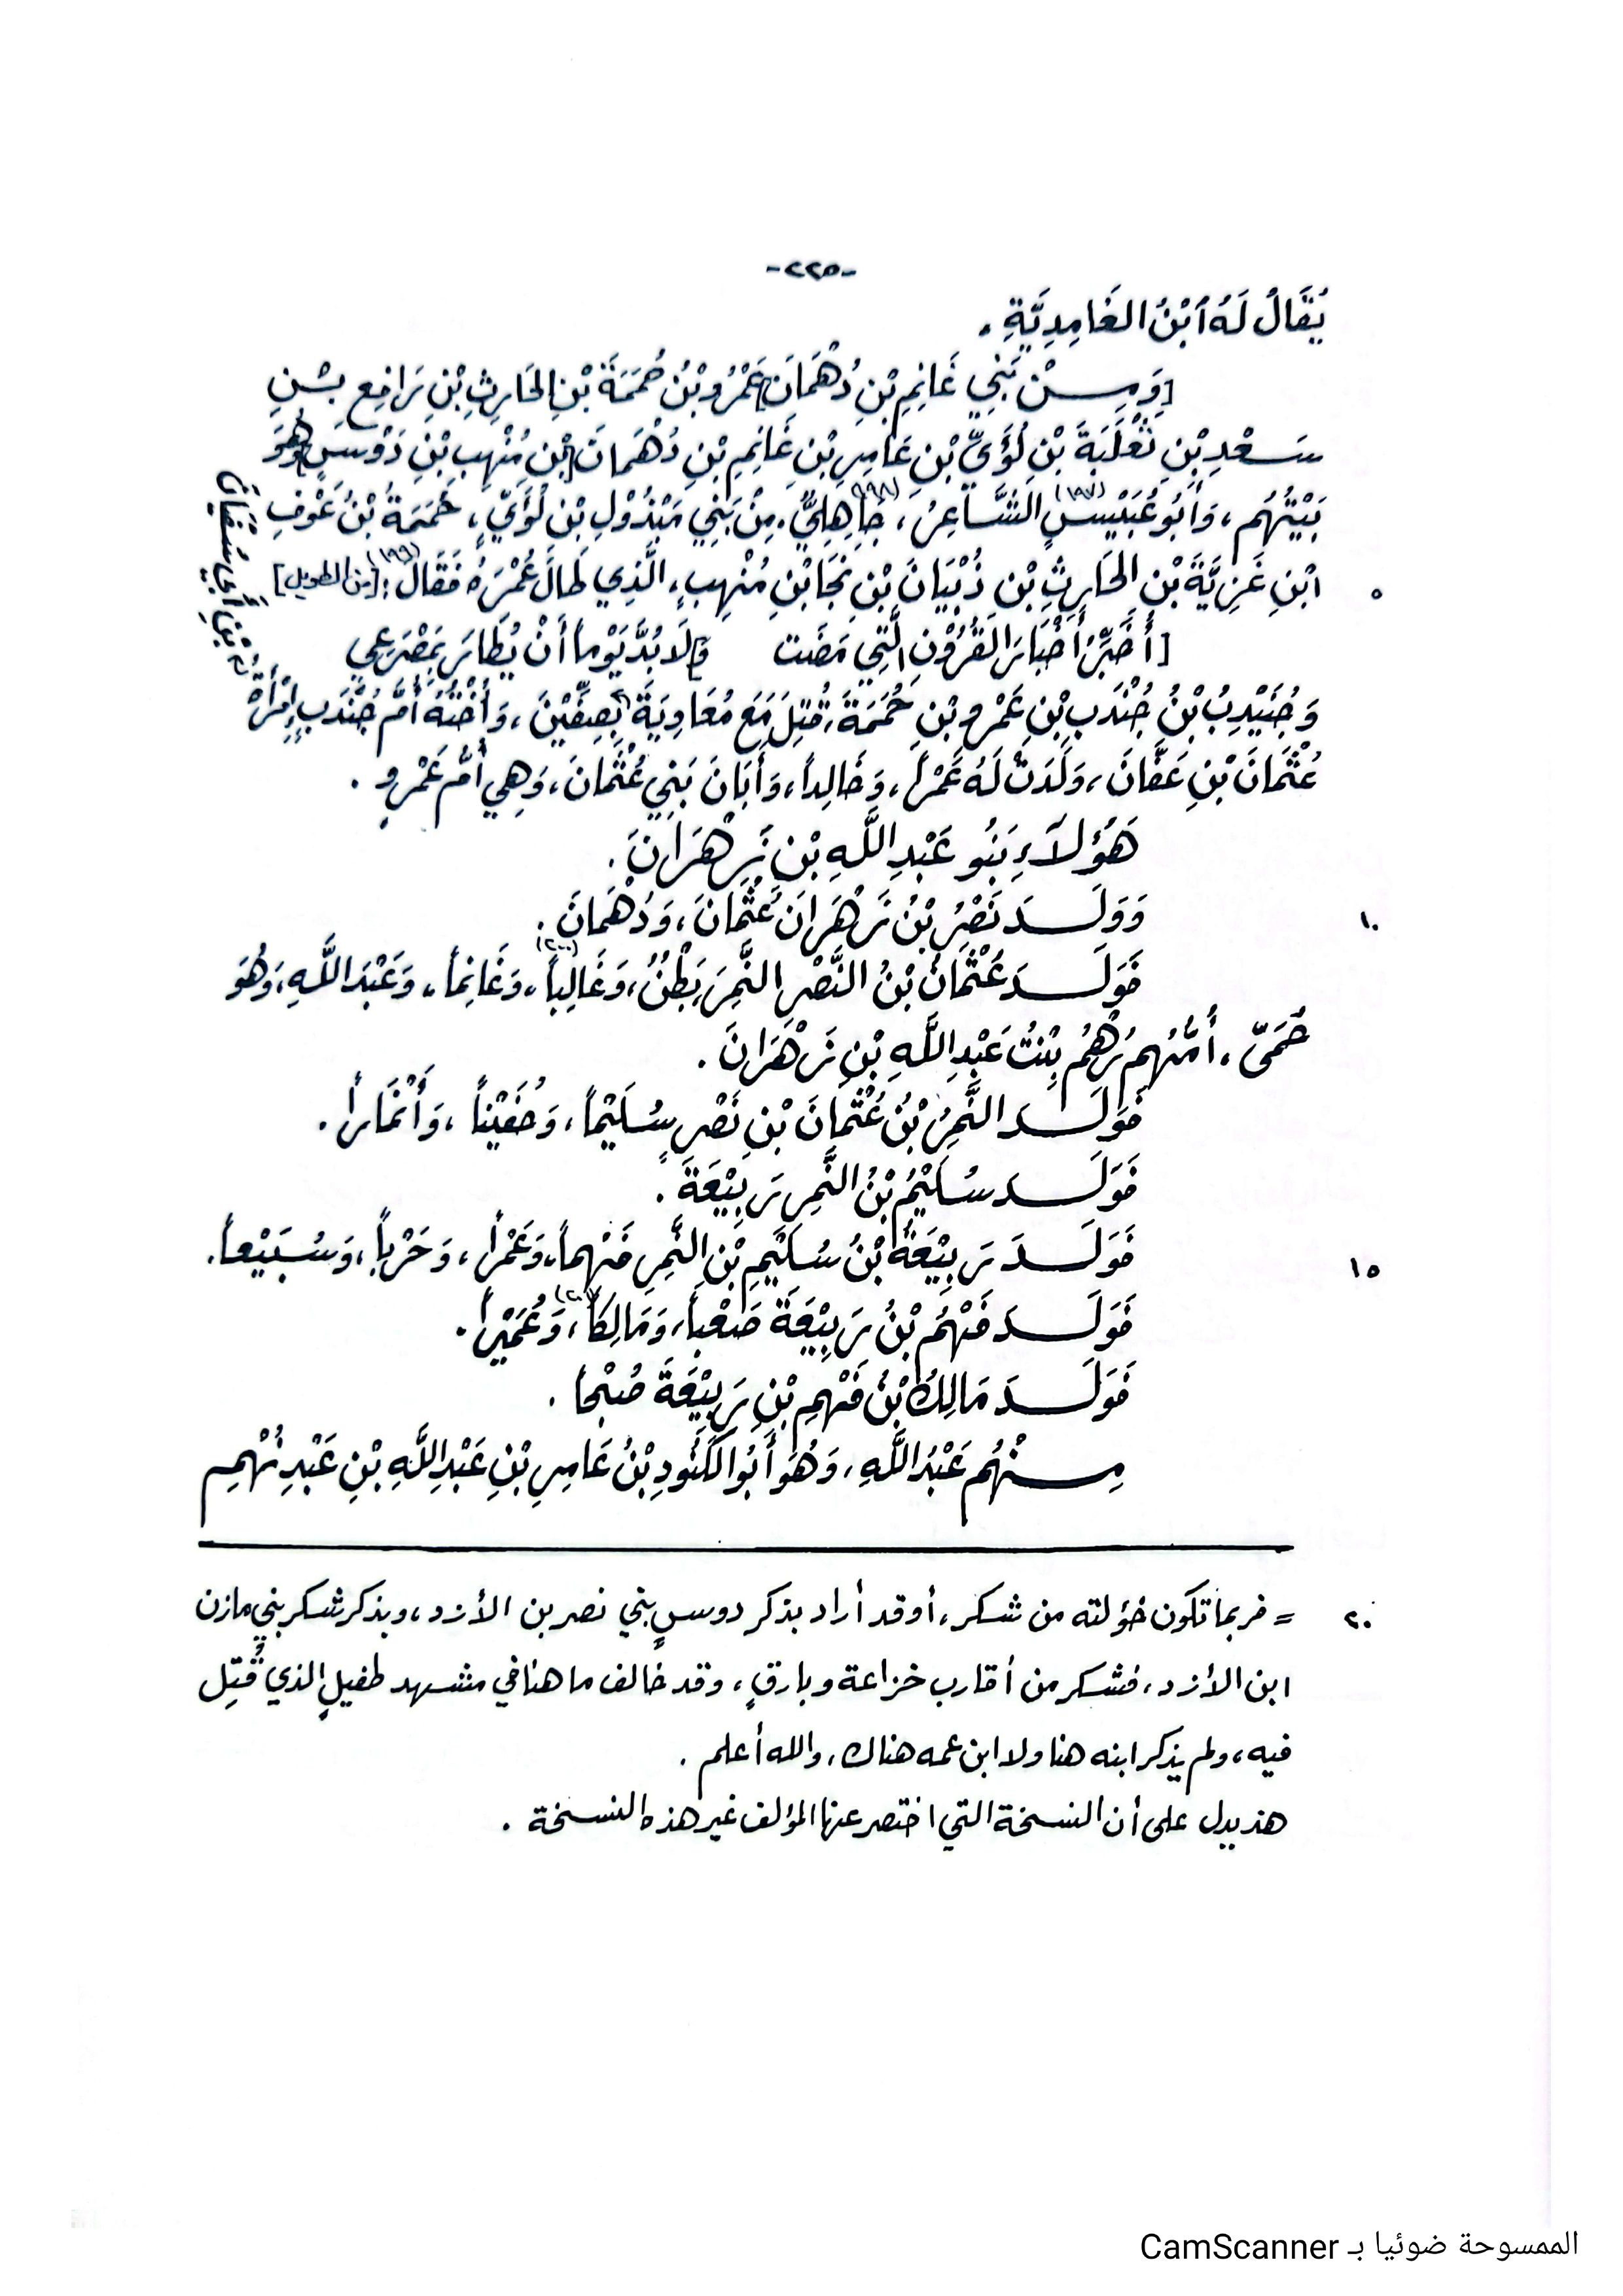 -٢٢٥-
يُقَالُ لَهُ ابْنُ الغَامِدِيَّةِ .
[وَمِنْ بَنِي غَانِمِ بْنِ دُهْمَانَ] عَمْرُو بْنُ حُمَمَةَ بْنِ الحَارِثِ بْنِ رَافِعِ بْنِ
سَعْدِ بْنِ ثَعْلَبَةَ بْنِ لُؤَيِّ بْنِ عَامِرِ بْنِ غَانِمِ بْنِ دُهْمَانَ [بْنِ مُنْهِبِ بْنِ دَوْسٍ] وَهُوَ
بَيْتُهُم ، وَأَبُو عُبَيْسٍ (١٩٧) الشَّاعِرُ ، جَاهِلِيٌّ (١٩٨) . مِنْ بَنِي مَبْذُوْلِ بْنِ لُؤَيٍّ ، حُمَمَةُ بْنُ عَوْفِ
٥ ابْنِ غَزِيَّةَ بْنِ الحَارِثِ بْنِ ذُبْيَانَ بْنِ نَجَا بْنِ مُنْهِبٍ ، الَّذِي طَالَ عُمْرُهُ فَقَالَ (١٩٩) : [من الطويل]
[أُخَبِّرُ أَخْبَارَ القُرُوْنِ الَّتِي مَضَت وَلَا بُدَّ يَوْماً أَنْ يُطَارَ بِمَصْرَعِي
وَجُنَيْدِبُ بْنُ جُنْدَبِ بْنِ عَمْرِو بْنِ حُمَمَةَ ، قُتِلَ مَعَ مُعَاوِيَةَ بِصِفِّيْنَ ، وَأُخْتُهُ أُمُّ جُنْدَبٍ إِمْرَأَةُ
بْنِ أَبِي سُفْيَانَ
عُثْمَانَ بْنِ عَفَّانَ ، وَلَدَتْ لَهُ عَمْراً ، وَخَالِداً ، وَأَبَانَ بَنِي عُثْمَانَ ، وَهِيَ أُمُّ عَمْرٍو .
هَؤُلَاَءِ بَنُو عَبْدِ اللَّهِ بْنِ زَهْرَانَ .
١٠ وَوَلَدَ نَصْرُ بْنُ زَهْرَانَ عُثْمَانَ ، وَدُهْمَانَ .
فَوَلَدَ عُثْمَانُ بْنُ النَّصْرِ النَّمِرَ بَطْنٌ ، وَغَالِباً (٢٠٠) ، وَغَانِماً ، وَعَبْدَ اللَّهِ ، وَهُوَ
حُمَىّ ، أُمُّهُم رُهْمُ بِنْتُ عَبْدِ اللَّهِ بْنِ زَهْرَانَ .
فَوَلَدَ النَّمِرُ بْنُ عُثْمَانَ بْنِ نَصْرٍ سُلَيْماً ، وَحُفَيْناً ، وَأَنْمَاراً .
فَوَلَدَ سُلَيْمُ بْنُ النَّمِرِ رَبِيْعَةَ .
١٥ فَوَلَدَ رَبِيْعَةُ بْنُ سُلَيْمِ بْنِ النَّمِرِ فَهْماً ، وَعَمْراً ، وَحَرْباً ، وَسُبَيْعاً .
فَوَلَدَ فَهْمُ بْنُ رَبِيْعَةَ صَعْباً ، وَمَالِكاً (٢٠١) ، وَعُمَيْراً .
فَوَلَدَ مَالِكُ بْنُ فَهْمِ بْنِ رَبِيْعَةَ صُبْحاً .
مِنْهُم عَبْدُ اللَّهِ ، وَهُوَ أَبُو الكَنُودِ بْنُ عَامِرِ بْنِ عَبْدِ اللَّهِ بْنِ عَبْدِ نُهْمِ
٢٠ = فربما تكون خؤلته من شكر ، أو قد أراد بذكر دوسٍ بني نصر بن الأزد ، وبذكر شكر بني مازن
ابن الأزد ، فشكر من أقارب خزاعة وبارقٍ ، وقد خالف ما هنا في مشهد طفيلٍ الذي قُتِل
فيه ، ولم يذكر ابنه هنا ولا ابن عمه هناك ، والله أعلم .
هذ يدل على أن النسخة التي اختصر عنها المؤلف غير هذه النسخة .
الممسوحة ضوئيا بـ CamScanner